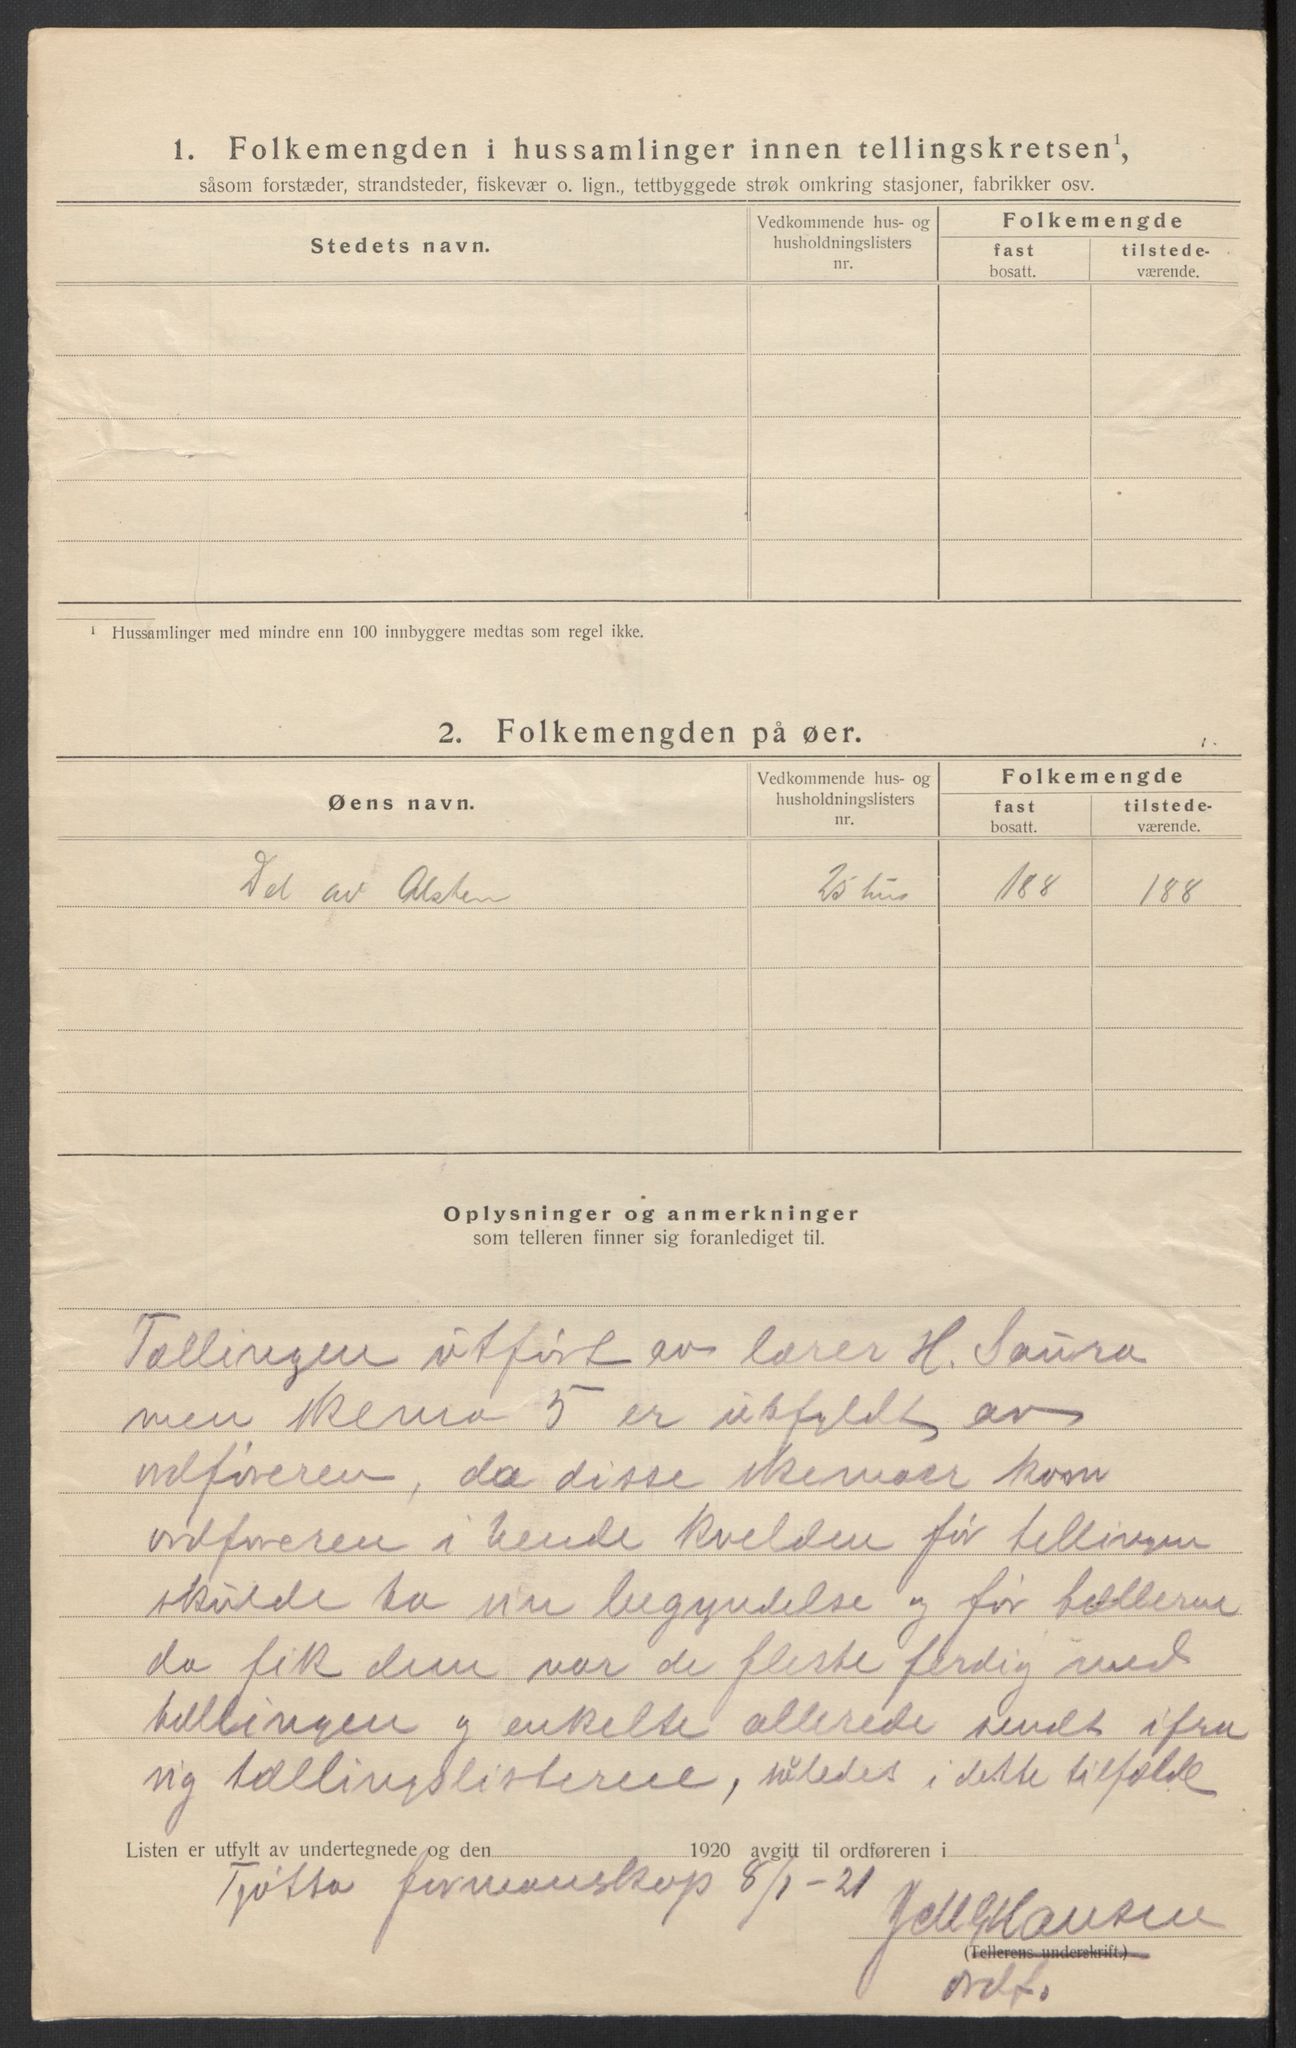 1. Folkemengden i hussamlinger innen tellingskretsen¹,
såsom forstæder, strandsteder, fiskevær o. lign., tettbyggede strøk omkring stasjoner, fabrikker osv.
Stedets navn.
Vedkommende hus- og
husholdningslisters
nr.
Folkemengde
fast
bosatt.
tilstede-
værende.
¹ Hussamlinger med mindre enn 100 innbyggere medtas som regel ikke.
2. Folkemengden på øer.
Øens navn.
Vedkommende hus- og
husholdningslisters
nr.
Folkemengde
fast
bosatt.
tilstede-
værende.
Del av Alsten 25 hus 188 188
Oplysninger og anmerkninger
som telleren finner sig foranlediget til.
Tællingen utført av lærer H. Saura
men skema 5 er utfyldt av
ordføreren, da disse skemaer kom
ordføreren i hende kvelden før tellingen
skulde ta sin begyndelse og før tællerne
da fik dem var de fleste ferdig med
tællingen og enkelte allerede sendt ifra
sig tællingslisterne, således i dette tilfælde
Listen er utfylt av undertegnede og den 1920 avgitt til ordføreren i
Tjøtta formanskap 8/1-21
Hansen
(Tellerens underskrift.)
ordf.